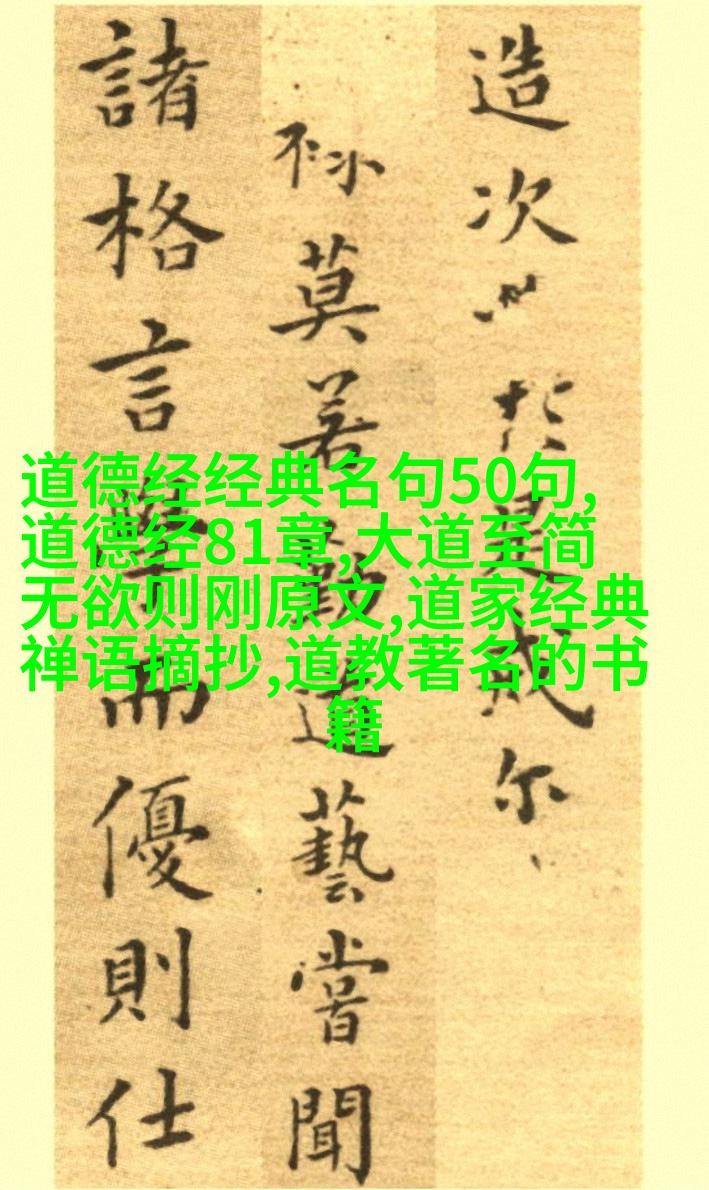 造次是戒尔
莫若勤道藝嘗聞
諸格言學而優則仕
道德经经典名句50句,
道德经81章,大道至简
无欲则刚原文,道家经典
禅语摘抄,道教著名的书
籍